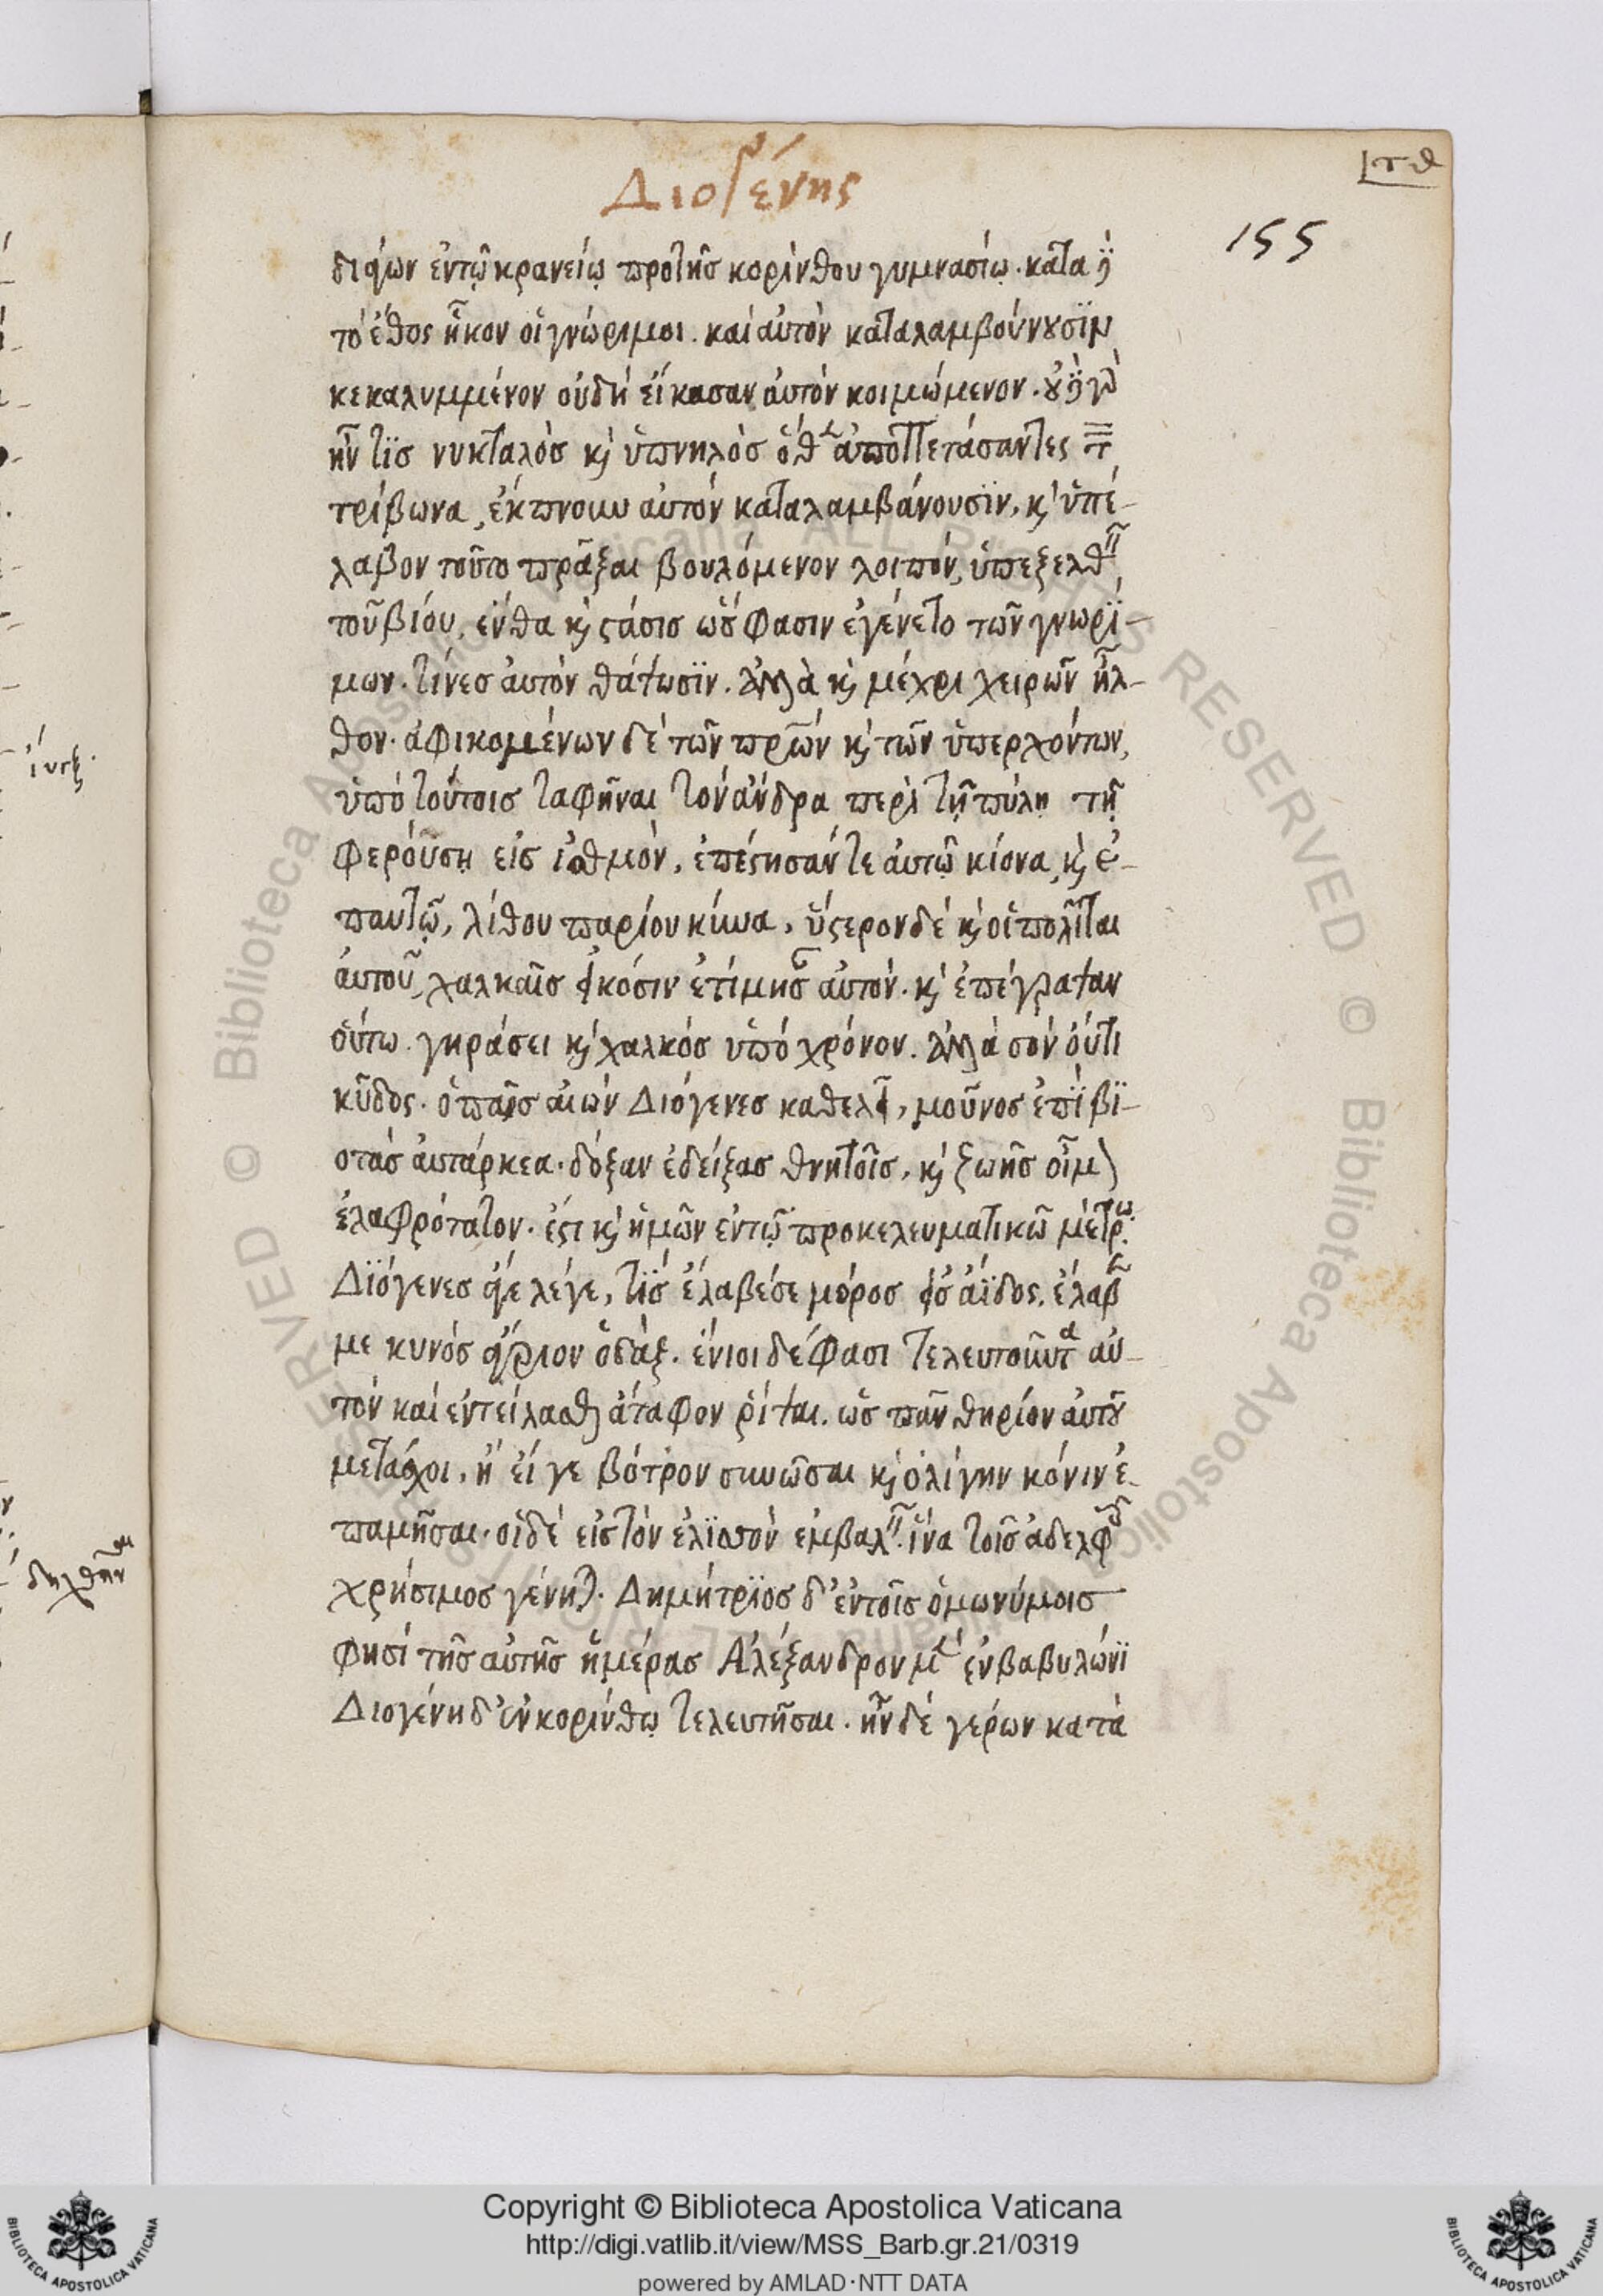 Διογένης
τθ
155
διάγων ἐν τῷ κρανείῳ πρὸ τῆς κορίνθου γυμνασίῳ. κατὰ δὲ
τὸ ἔθος ἧκον οἱ γνώριμοι. καὶ αὐτὸν καταλαμβούνουσϊν
κεκαλυμμένον οὐδὴ εἴκασαν αὐτὸν κοιμώμενον. οὐδὲ γὰρ
ἦν τϊς νυκταλὸς καὶ ὑπνηλὸς ὅθεν ἀποππετάσαντες τὸν
τρίβωνα, ἔκπνουν αὐτὸν καταλαμβάνουσϊν, καὶ ὑπέ-
λαβον τοῦτο πρᾶξαι βουλόμενον λοιπὸν, ὑπεξελθεῖν
τοῦ βίου, ἔνθα καὶ στάσις ὥς φασιν ἐγένετο τῶν γνωρϊ-
μων. τίνες αὐτὸν θάψωσϊν. ἀλλὰ καὶ μέχρι χειρῶν ἦλ-
θον. ἀφικομένων δὲ τῶν πρῶν καὶ τῶν ὑπερχόντων,
ὑπὸ τούτοις ταφῆναι τὸν ἄνδρα περὶ τῇ πύλῃ τῇ
φερούσῃ εἰς ἰσθμὸν, ἐπέστησάν τε αὐτῷ κίονα, καὶ ἐ-
π αυτῷ, λίθου παρίου κύνα, ὕστερον δὲ καὶ οἱ πολῖται
αὐτοῦ, χαλκαῖς εἰκόσιν ἐτίμησαν αὐτὸν. καὶ ἐπέγραψαν
οὕτω. γηράσει καὶ χαλκὸς ὑπὸ χρόνον. ἀλλὰ σὸν οὔτι
κῦδος. ὁ παῖς αἰὼν Διόγενες καθελεῖ, μοῦνος ἐπὶ βϊ-
οτὰς αὐτάρκεα. δόξαν ἔδειξας θνητοῖς, καὶ ζωῆς οἶμον
ἐλαφρότατον. ἔστι καὶ ἡμῶν ἐν τῷ προκελευματικῶ μέτρω.
Δϊόγενες ἄγε λέγε, τϊς ἔλαβέ σε μόρος ἐς ἄϊδος, ἔλαβεν
με κυνὸς ἄγριον ὀδὰξ. ἔνιοι δέ φασι τελευτοῦντα αὐ-
τὸν καὶ ἐντείλασθαι ἄταφον ῥίψαι. ὡς πᾶν θηρίον αὐτοῦ
μετάσχοι, ἢ εἴ γε βότρον συνῶσαι καὶ ὀλίγην κόνιν ἐ-
παμῆσαι. οἱ δὲ εἰς τὸν ἐλϊσσὸν ἐμβαλεῖν. ἵνα τοῖς ἀδελφοῖς
χρήσιμος γένηται. Δημήτρϊος δ' ἐν τοῖς ὁμωνύμοις
φησί τῆς αὐτῆς ἡμέρας Ἀλέξανδρον μὲν ἐν βαβυλώνϊ
Διογένη δ' ἐν κορίνθῳ τελευτῆσαι. ἦν δὲ γέρων κατὰ
Copyright © Biblioteca Apostolica Vaticana
http://digi.vatlib.it/view/MSS_Barb.gr.21/0319
powered by AMLAD·NTT DATA